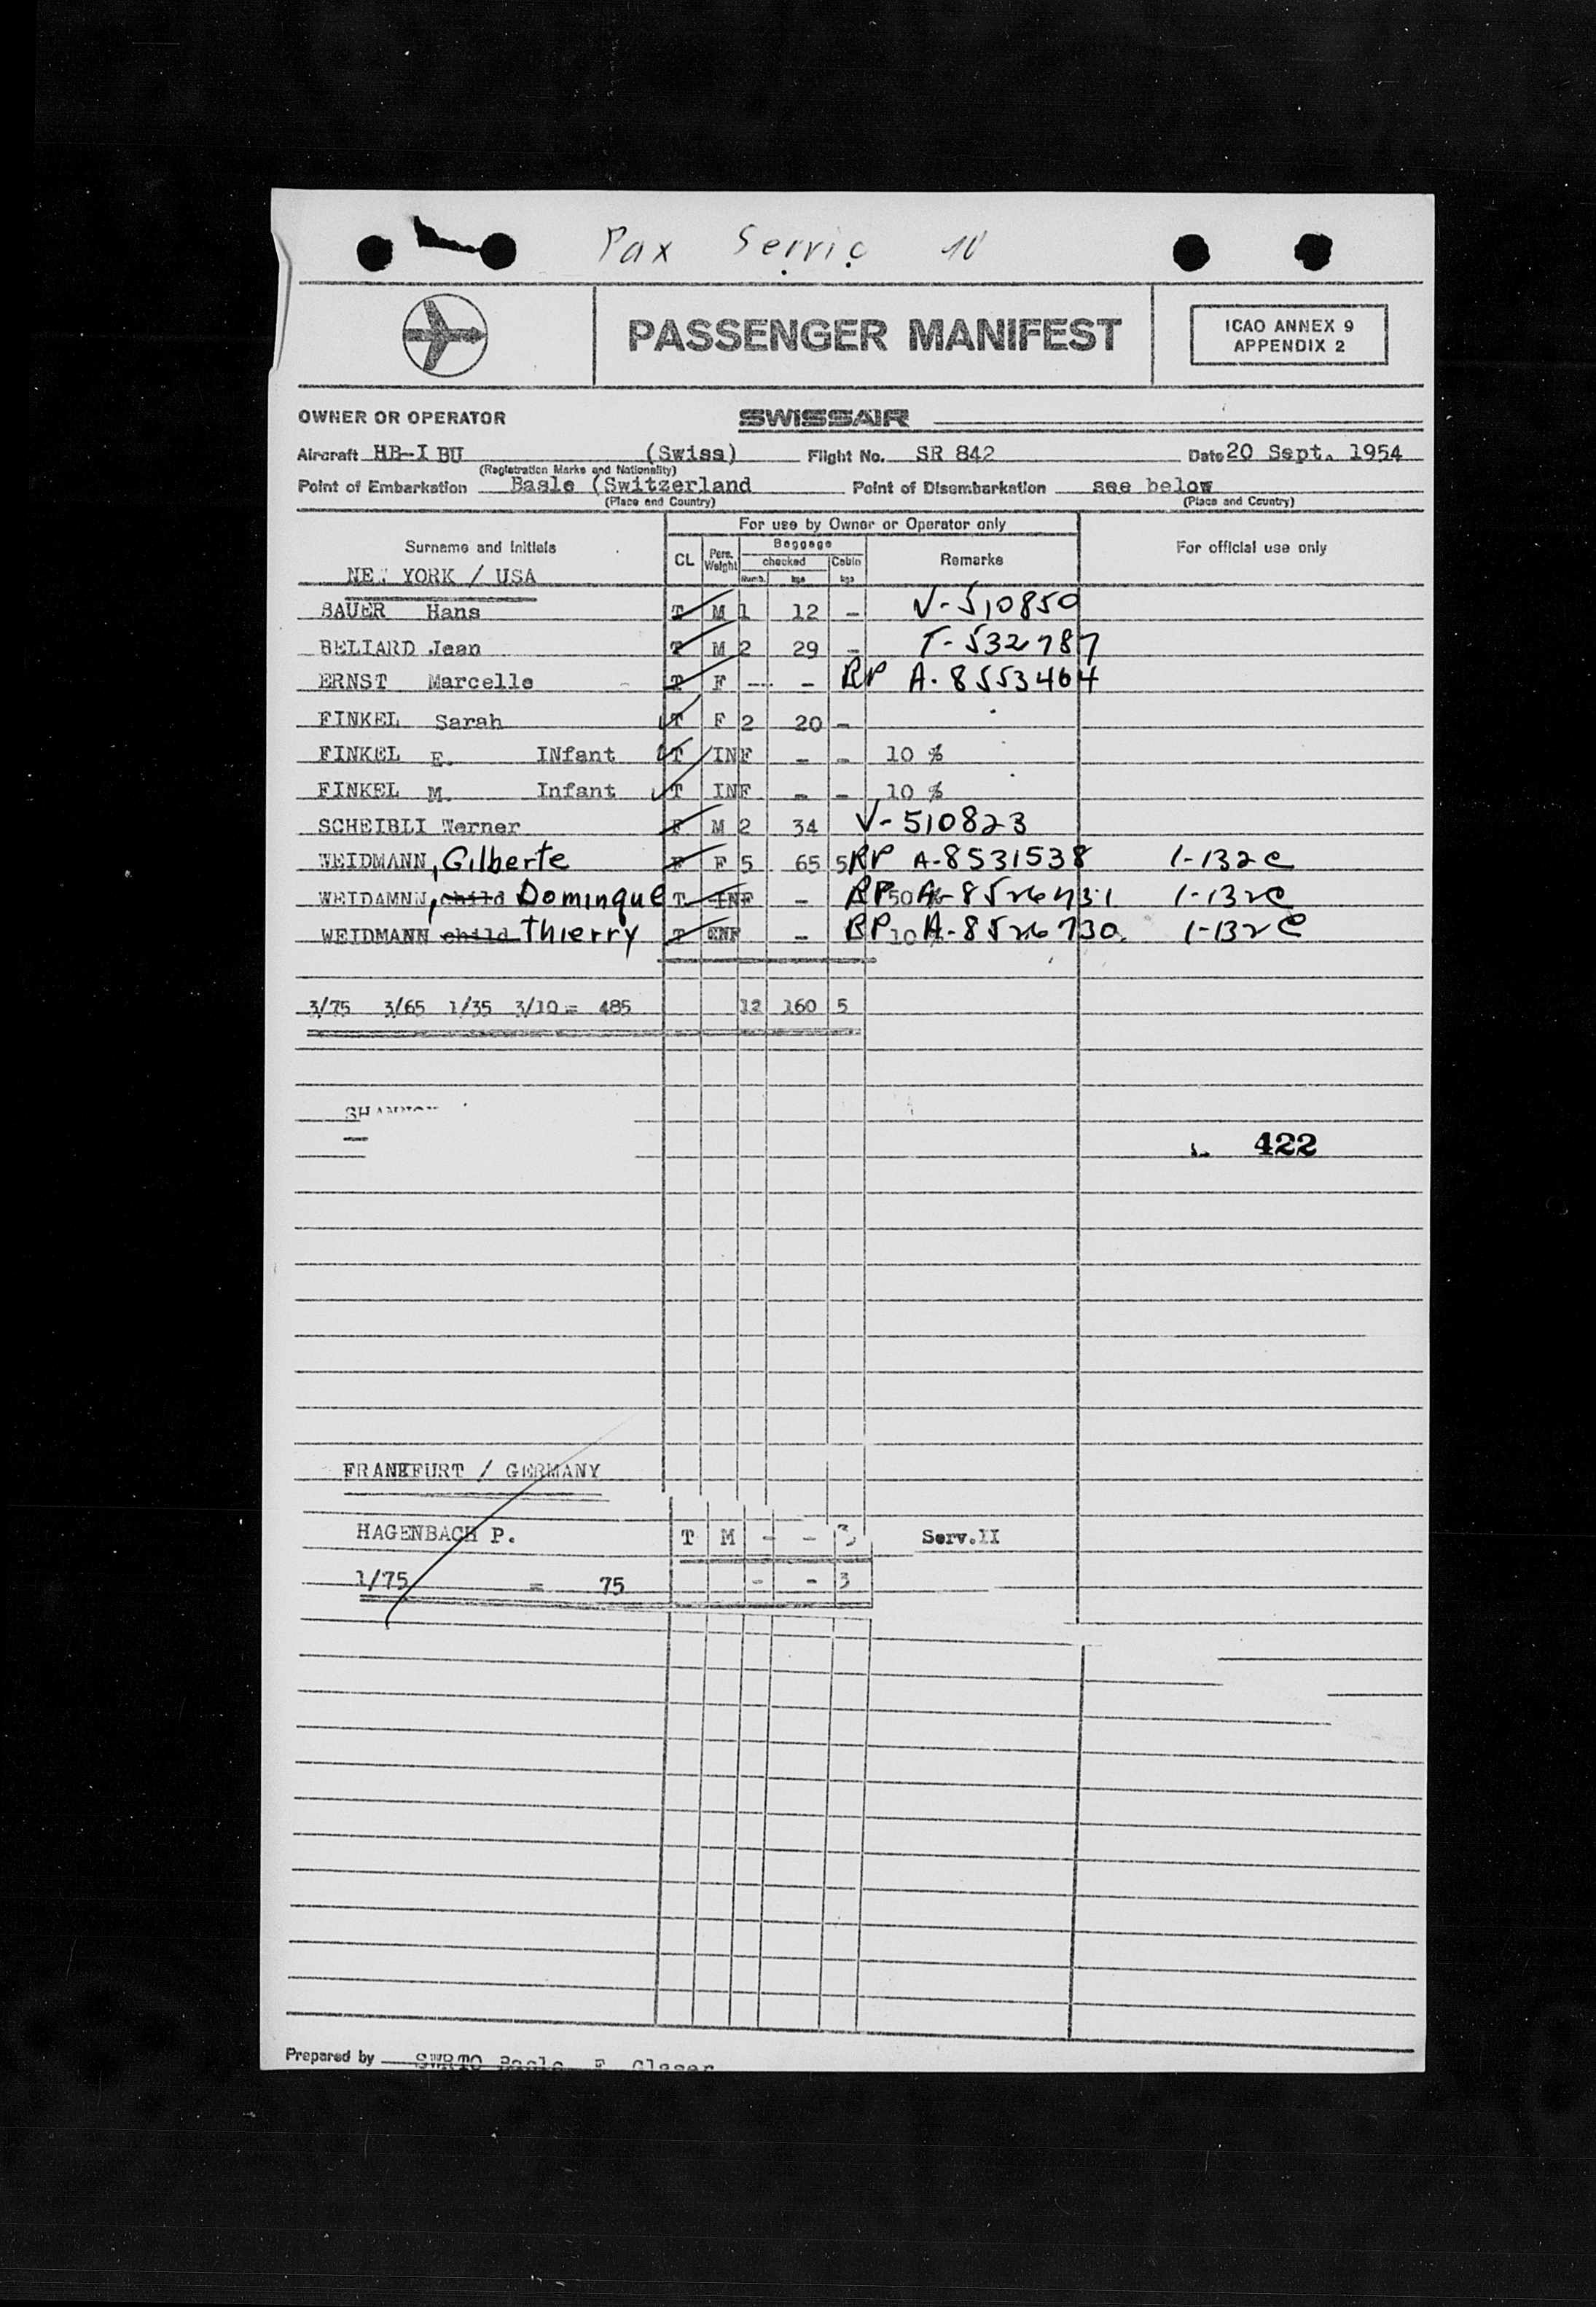 Pax Servic 10
PASSENGER MANIFEST
ICAO ANNEX 9
APPENDIX 2
OWNER OR OPERATOR SWISSAIR
Aircraft HB-I BU (Swiss) Flight No. SR 842 Date 20 Sept. 1954
(Registration Marks and Nationality)
Point of Embarkation Basle (Switzerland Point of Disembarkation see below
(Place and Country) (Place and Country)
For use by Owner or Operator only
Surname and Initials CL Pers. Weight Baggage Remarks For official use only
checked Cabin
Numb. kgs kgs
NEW YORK / USA
BAUER Hans T M 1 12 - V-510850
BELIARD Jean T M 2 29 - T-532787
ERNST Marcelle T F -- - RP A-8553464
FINKEL Sarah T F 2 20 -
FINKEL E. INfant T INF - - 10 %
FINKEL M. Infant T INF - - 10 %
SCHEIBLI Werner F M 2 34 V-510823
WEIDMANN, Gilberte F F 5 65 5 RP A-8531538 1-132C
WEIDAMNN, child Dominque T INF - RP 50 % A-8526731 1-132C
WEIDMANN child Thierry T INF - RP 10 % A-8526730 1-132C
3/75 3/65 1/35 3/10 = 485 12 160 5
422
FRANKFURT / GERMANY
HAGENBACH P. T M - - 3 Serv.II
1/75 = 75 - - 3
Prepared by SWRTO Basle F. Glaser